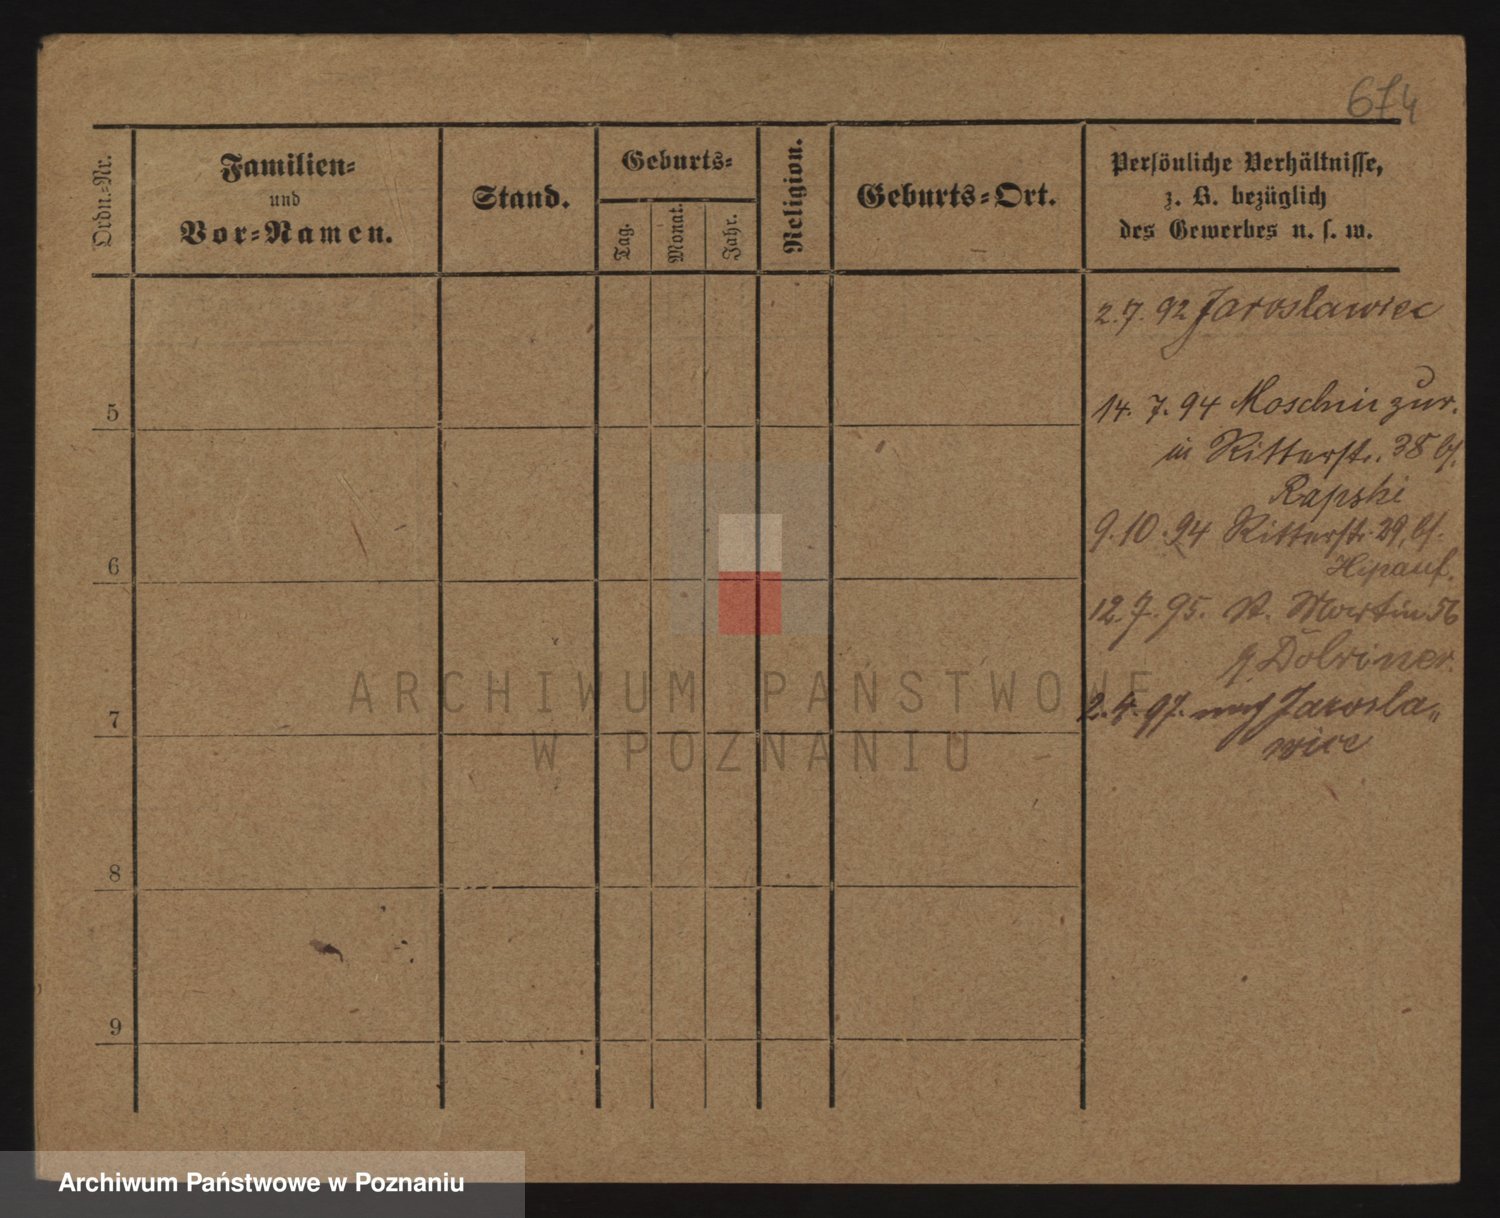 674
Ordn.=Nr.
Familien=
und
Vor=Namen.
Stand.
Geburts=
Tag.
Monat.
Jahr.
Religion.
Geburts=Ort.
Persönliche Verhältnisse,
z. B. bezüglich
des Gewerbes u. s. w.
2.7.92 Jarosławiec
14.7.94 Moschin zur.
in Ritterstr. 38 bf.
Rapski
9.10.94 Ritterstr. 29, bf.
12.7.95. St. Martin 56
Dobriner.
2.4.97. nach Jarosla„
wiec
5
6
7
8
9
ARCHIWUM PAŃSTWOWE
W POZNANIU
Archiwum Państwowe w Poznaniu